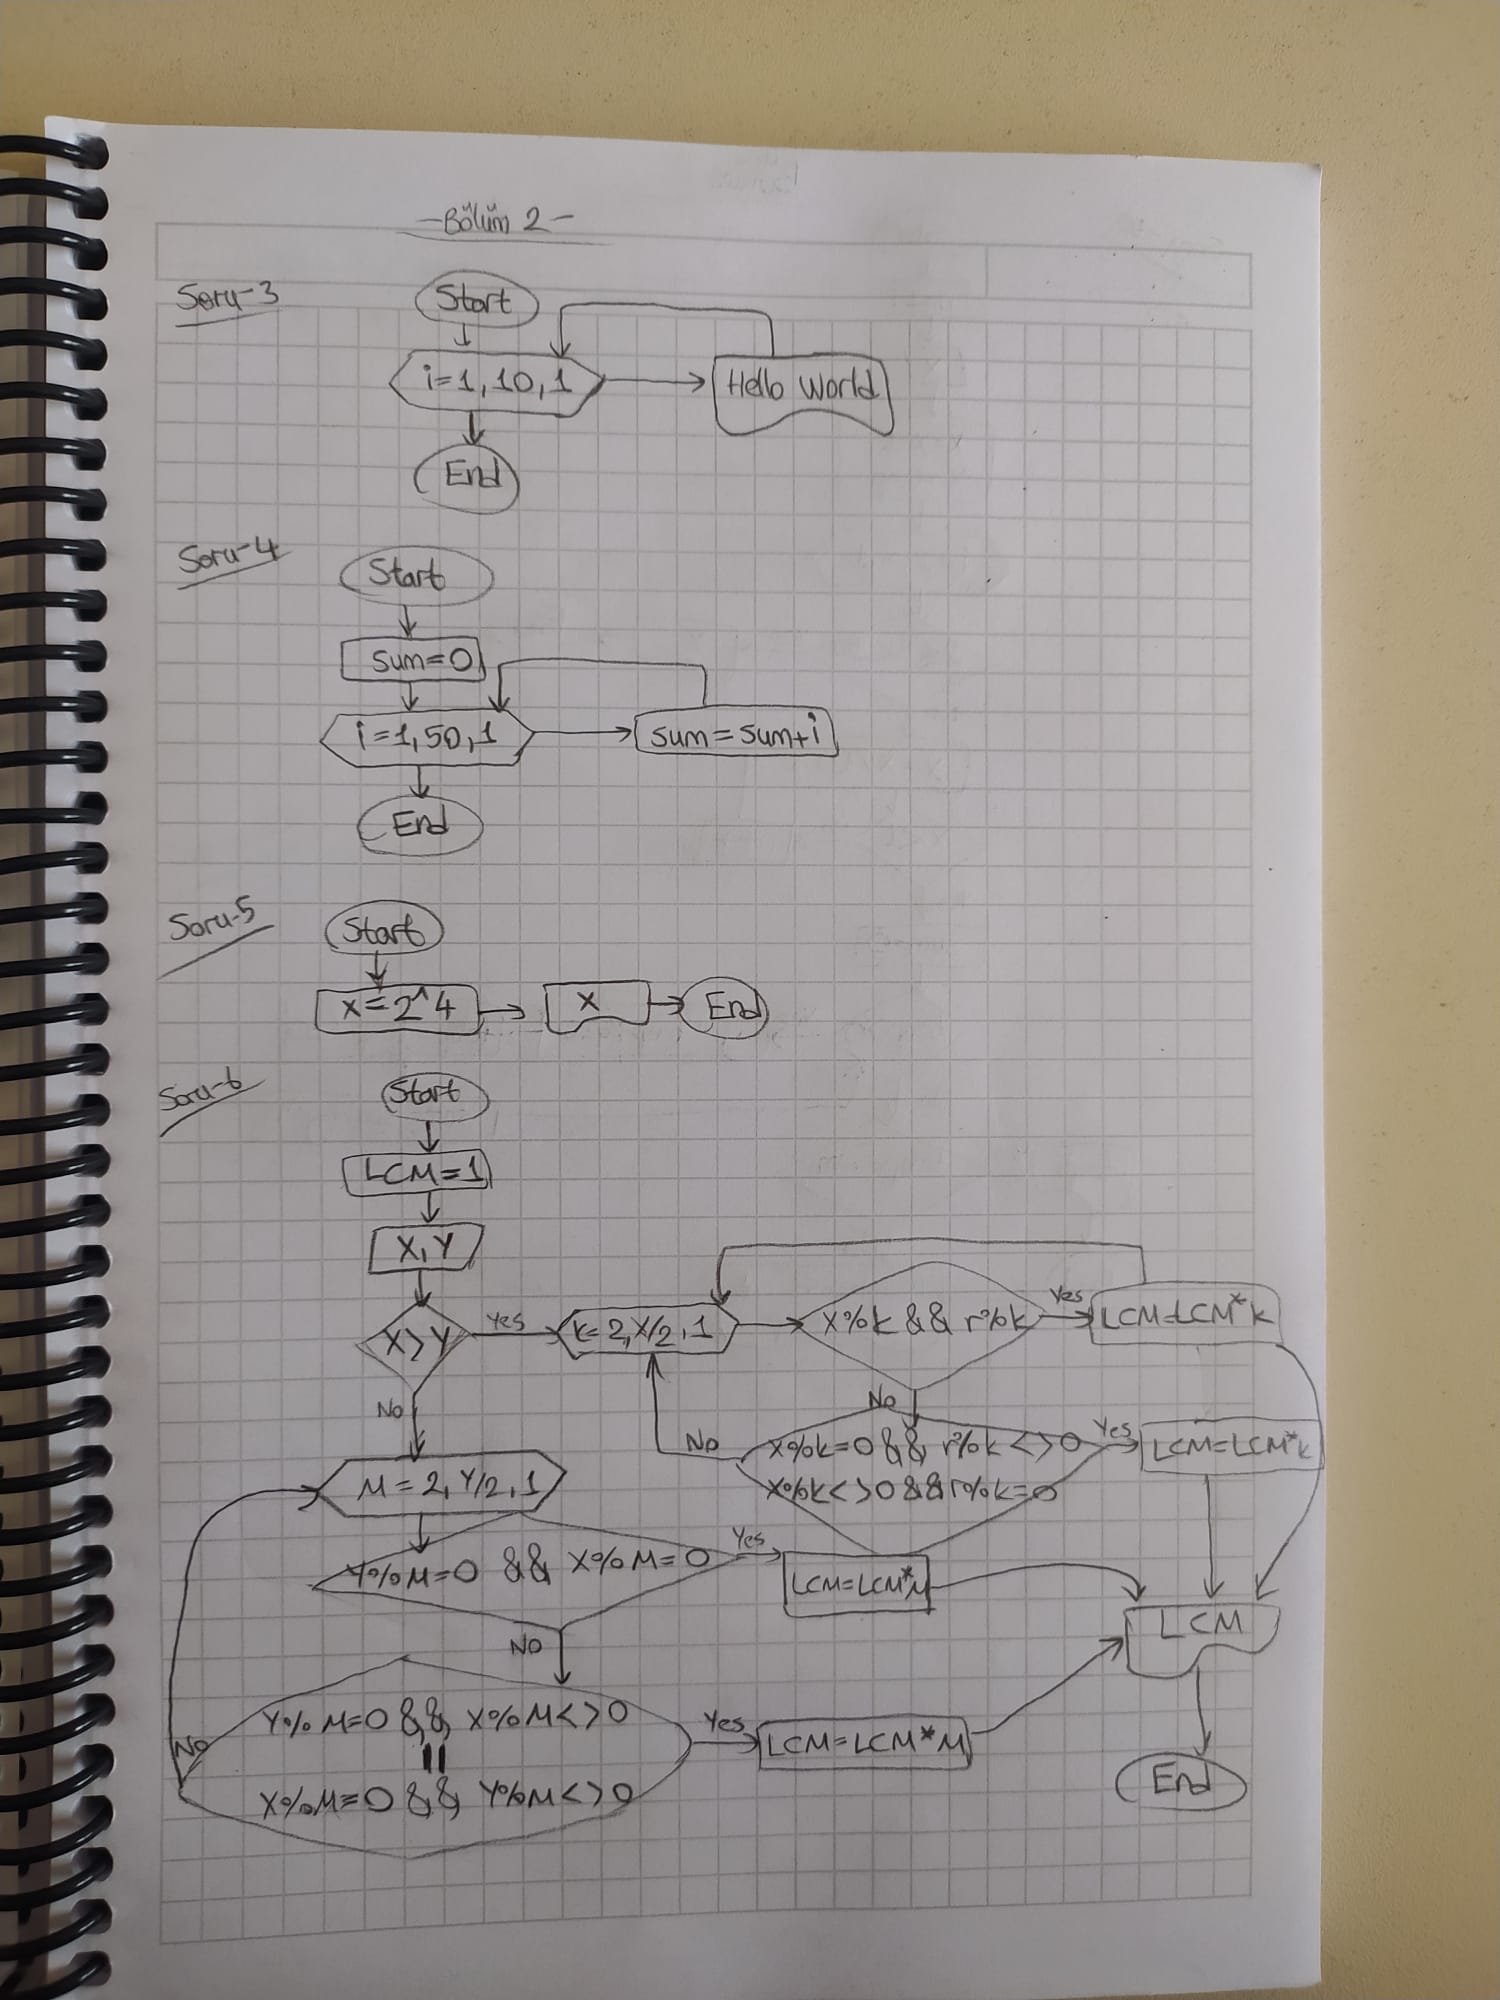 -Bölüm 2-
Soru-3
Start
i=1,10,1
Hello World
End
Soru-4
Start
sum=0
i=1,50,1
sum=sum+i
End
Soru-5
Start
x=2^4
x
End
Soru-6
Start
LCM=1
X,Y
X>Y
Yes
k=2,X/2,1
X%k && r%k
Yes
LCM=LCM*k
No
No
X%k=0 && r%k<>0
X%k<>0 && r%k=0
Yes
LCM=LCM*k
No
M=2,Y/2,1
Y%M=0 && X%M=0
Yes
LCM=LCM*M
LCM
No
Y%M=0 && X%M<>0
||
X%M=0 && Y%M<>0
No
Yes
LCM=LCM*M
End